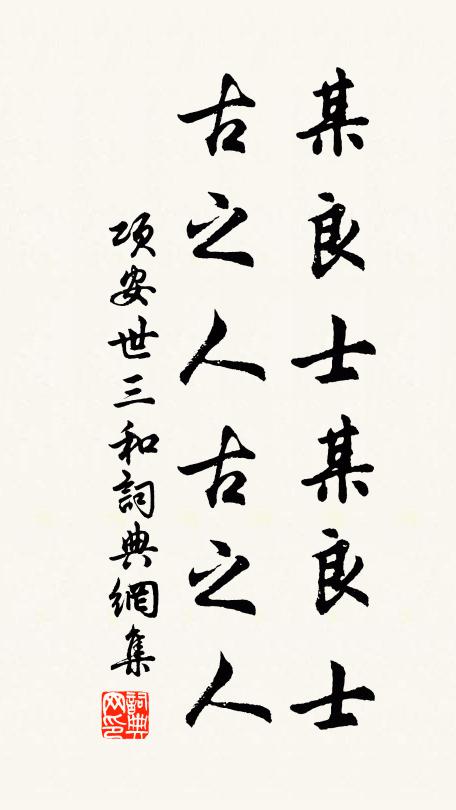 某良士某良士
古之人古之人
项安世三和詞典網集
詞典網印